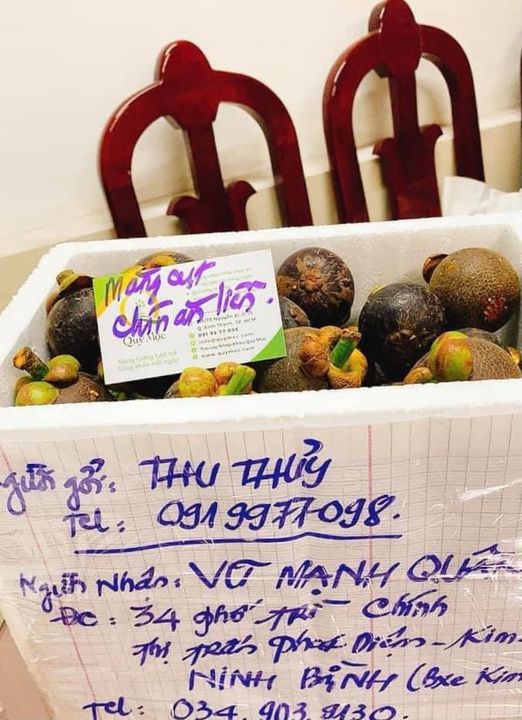 Măng cụt
chín ăn liền.
Quý Mộc
www.quymoc.com
Người gởi: THU THỦY
Tel: 0919977098.
Người Nhận: VŨ MẠNH QUÂ
ĐC: 34 phố Chính
Thị Trấn Phát Diệm - Kim
NINH BÌNH (Bxe Kim
Tel: 034.903.9130